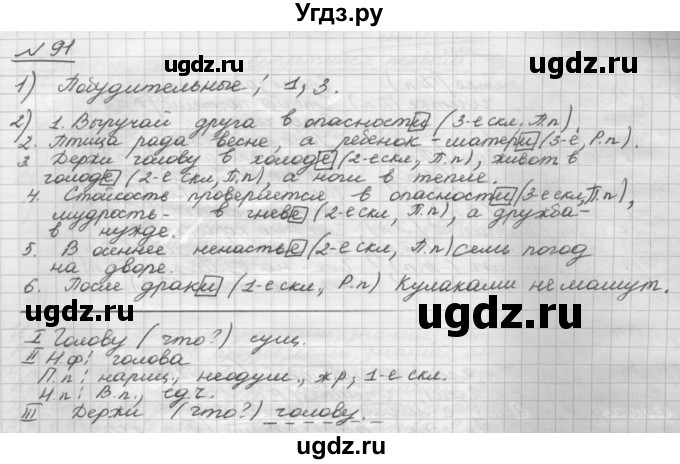 Угдз.ру
№ 91
1) Побудительные: 1, 3.
2) 1. Выручай друга в опасности (3-е скл. П.п).
2. Птица рада весне, а ребенок - матери (3-е, Р.п).
3 Держи голову в холоде (2-е скл, П.п), живот в
голоде (2-е скл, П.п), а ноги в тепле.
4. Стойкость проверяется в опасности (3-е скл, П.п),
мудрость- в гневе (2-е скл, П.п), а дружба-
в нужде.
5. В осеннее ненастье (2-е скл, П.п) семь погод
на дворе.
6. После драки (1-е скл, Р.п) Кулаками не машут.
I Голову (что?) сущ.
II Н.ф: голова
П.п: нариц., неодуш., ж.р., 1-е скл.
Н.п: В.п., ед.ч.
III Держи (что?) голову.
ugdz.ru
ugdz.ru
ugdz.ru
ugdz.ru
ugdz.ru
ugdz.ru
ugdz.ru
ugdz.ru
ugdz.ru